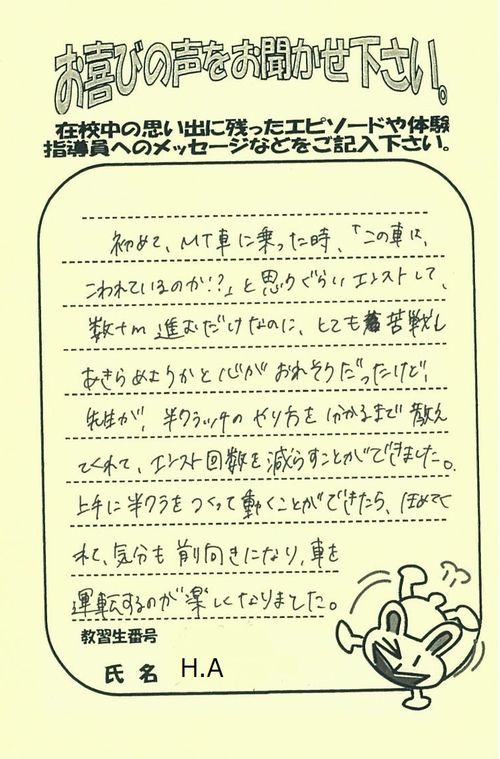 お喜びの声をお聞かせ下さい。
在校中の思い出に残ったエピソードや体験
指導員へのメッセージなどをご記入下さい。
初めて、MT車に乗った時、「この車は、
こわれているのか!?」と思うぐらいエンストして、
数十m進むだけなのに、とても苦戦し
あきらめようかと心がおれそうだったけど、
先生が、半クラッチのやり方を分かるまで教え
てくれて、エンスト回数を減らすことができました。
上手に半クラをつくって動くことができたら、ほめてく
れて、気分も前向きになり、車を
運転するのが楽しくなりました。
教習生番号
氏名 H.A